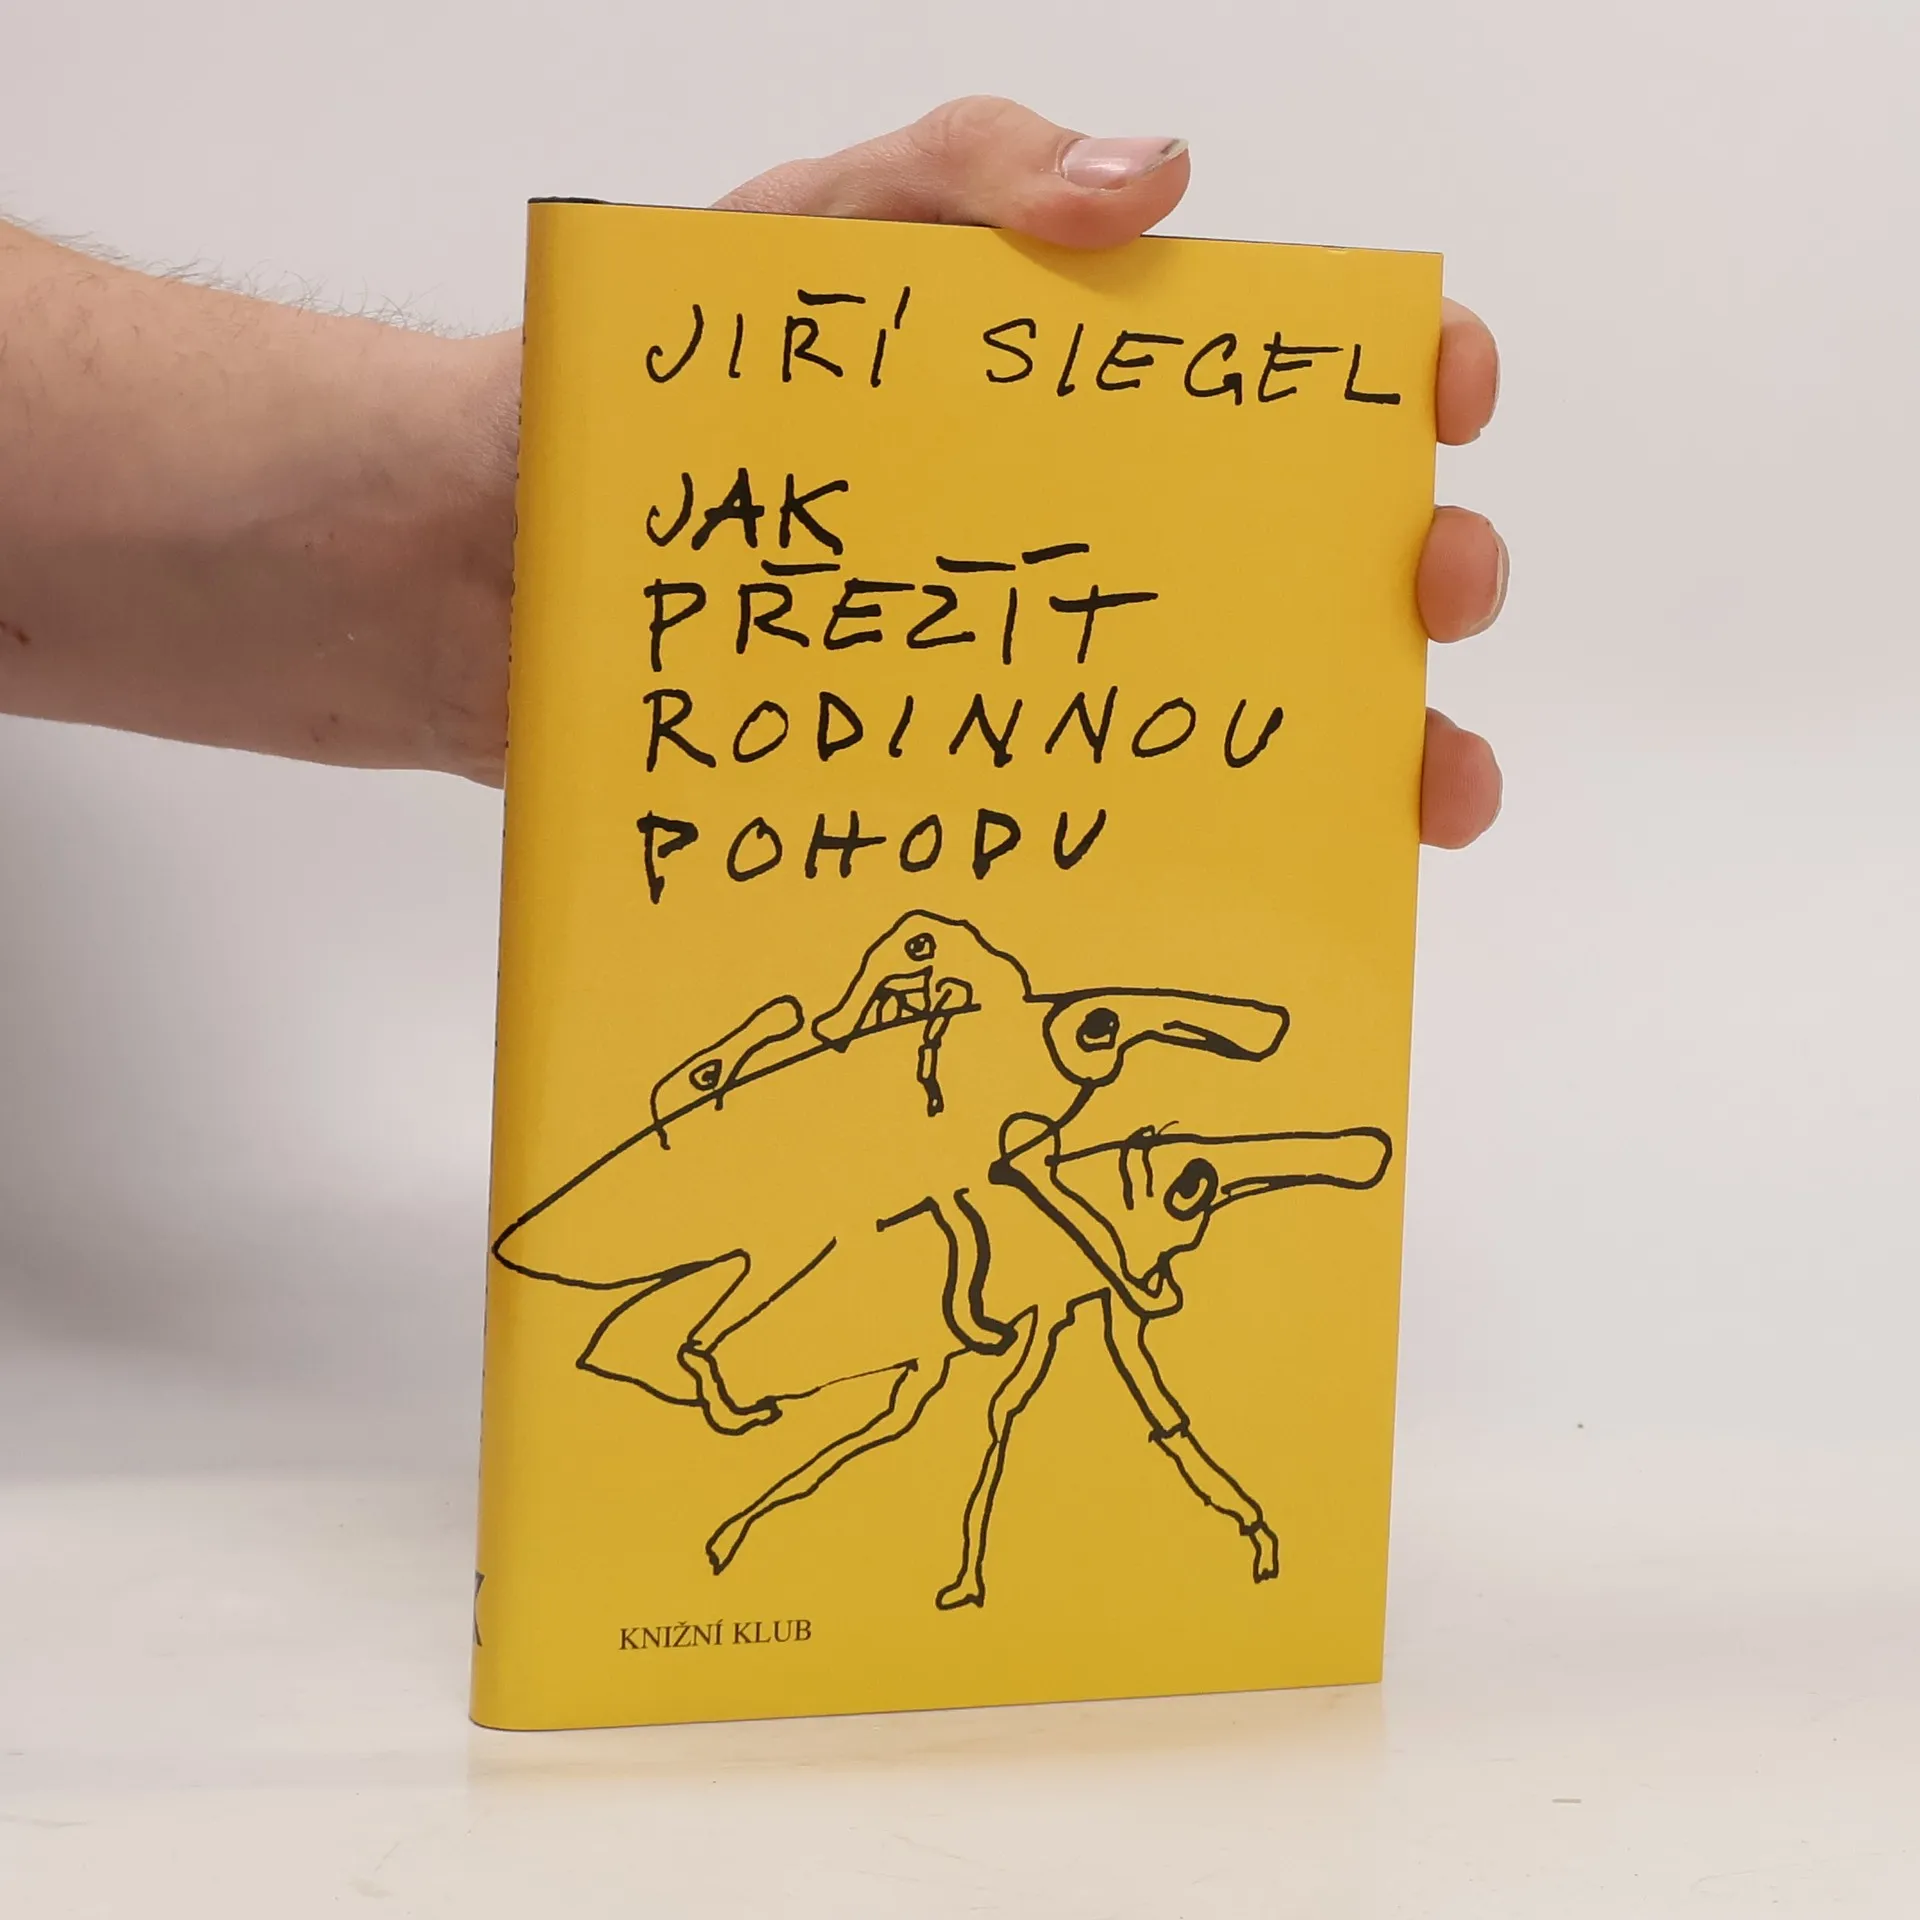 JIŘÍ SIEGEL
JAK
PŘEŽÍT
RODINNOU
POHODU
KNIŽNÍ KLUB